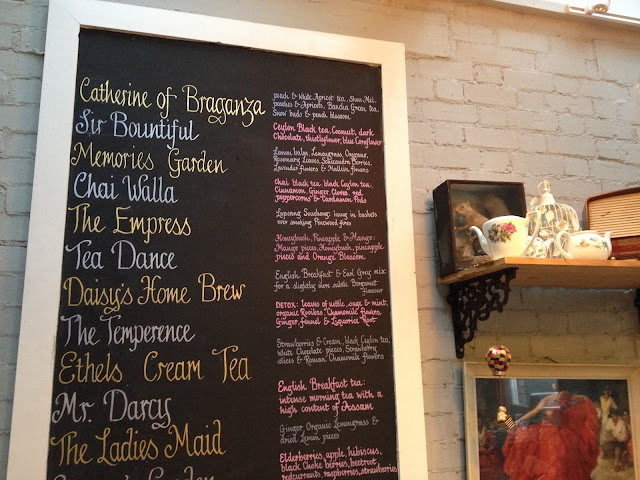 Catherine of Braganza
peach & White Apricot tea, Show Mei,
peaches & Apricots, Bancha Green tea,
Snow buds & peach blossom
Sir Bountiful
Ceylon Black tea, Coconut, dark
Chocolate, thistleflower, blue Cornflower
Memories Garden
Lemon balm, Lemongrass, Oregano,
Rosemary Leaves, Schizandra Berries,
Lavender flowers & Mallow flowers
Chai Walla
chai black tea. black Ceylon tea,
Cinnamon, Ginger, Cloves, red
peppercorns & Cardamon Pods
The Empress
Lapsang Souchong: hung in baskets
over smoking Pinewood fires
Tea Dance
Honeybush, Pineapple & Mango:
Mango pieces, Honeybush, pineapple
pieces and Orange Blossom
Daisy's Home Brew
English Breakfast & Earl Grey mix
for a slightly more subtle Bergamot
flavour
The Temperence
DETOX: leaves of nettle, sage & mint,
organic Rooibos, Chamomile flowers,
Ginger, fennel & Liquorice Root
Ethels Cream Tea
Strawberries & Cream, black Ceylon tea,
White Chocolate pieces, Strawberry
slices & Roman Chamomile flowers
Mr. Darcy
English Breakfast tea:
intense morning tea with a
high content of Assam
The Ladies Maid
Ginger, Organic Lemongrass &
dried Lemon pieces
Garden
Elderberries, apple, hibiscus,
black Choke berries, beetroot
redcurrants, raspberries, strawberries